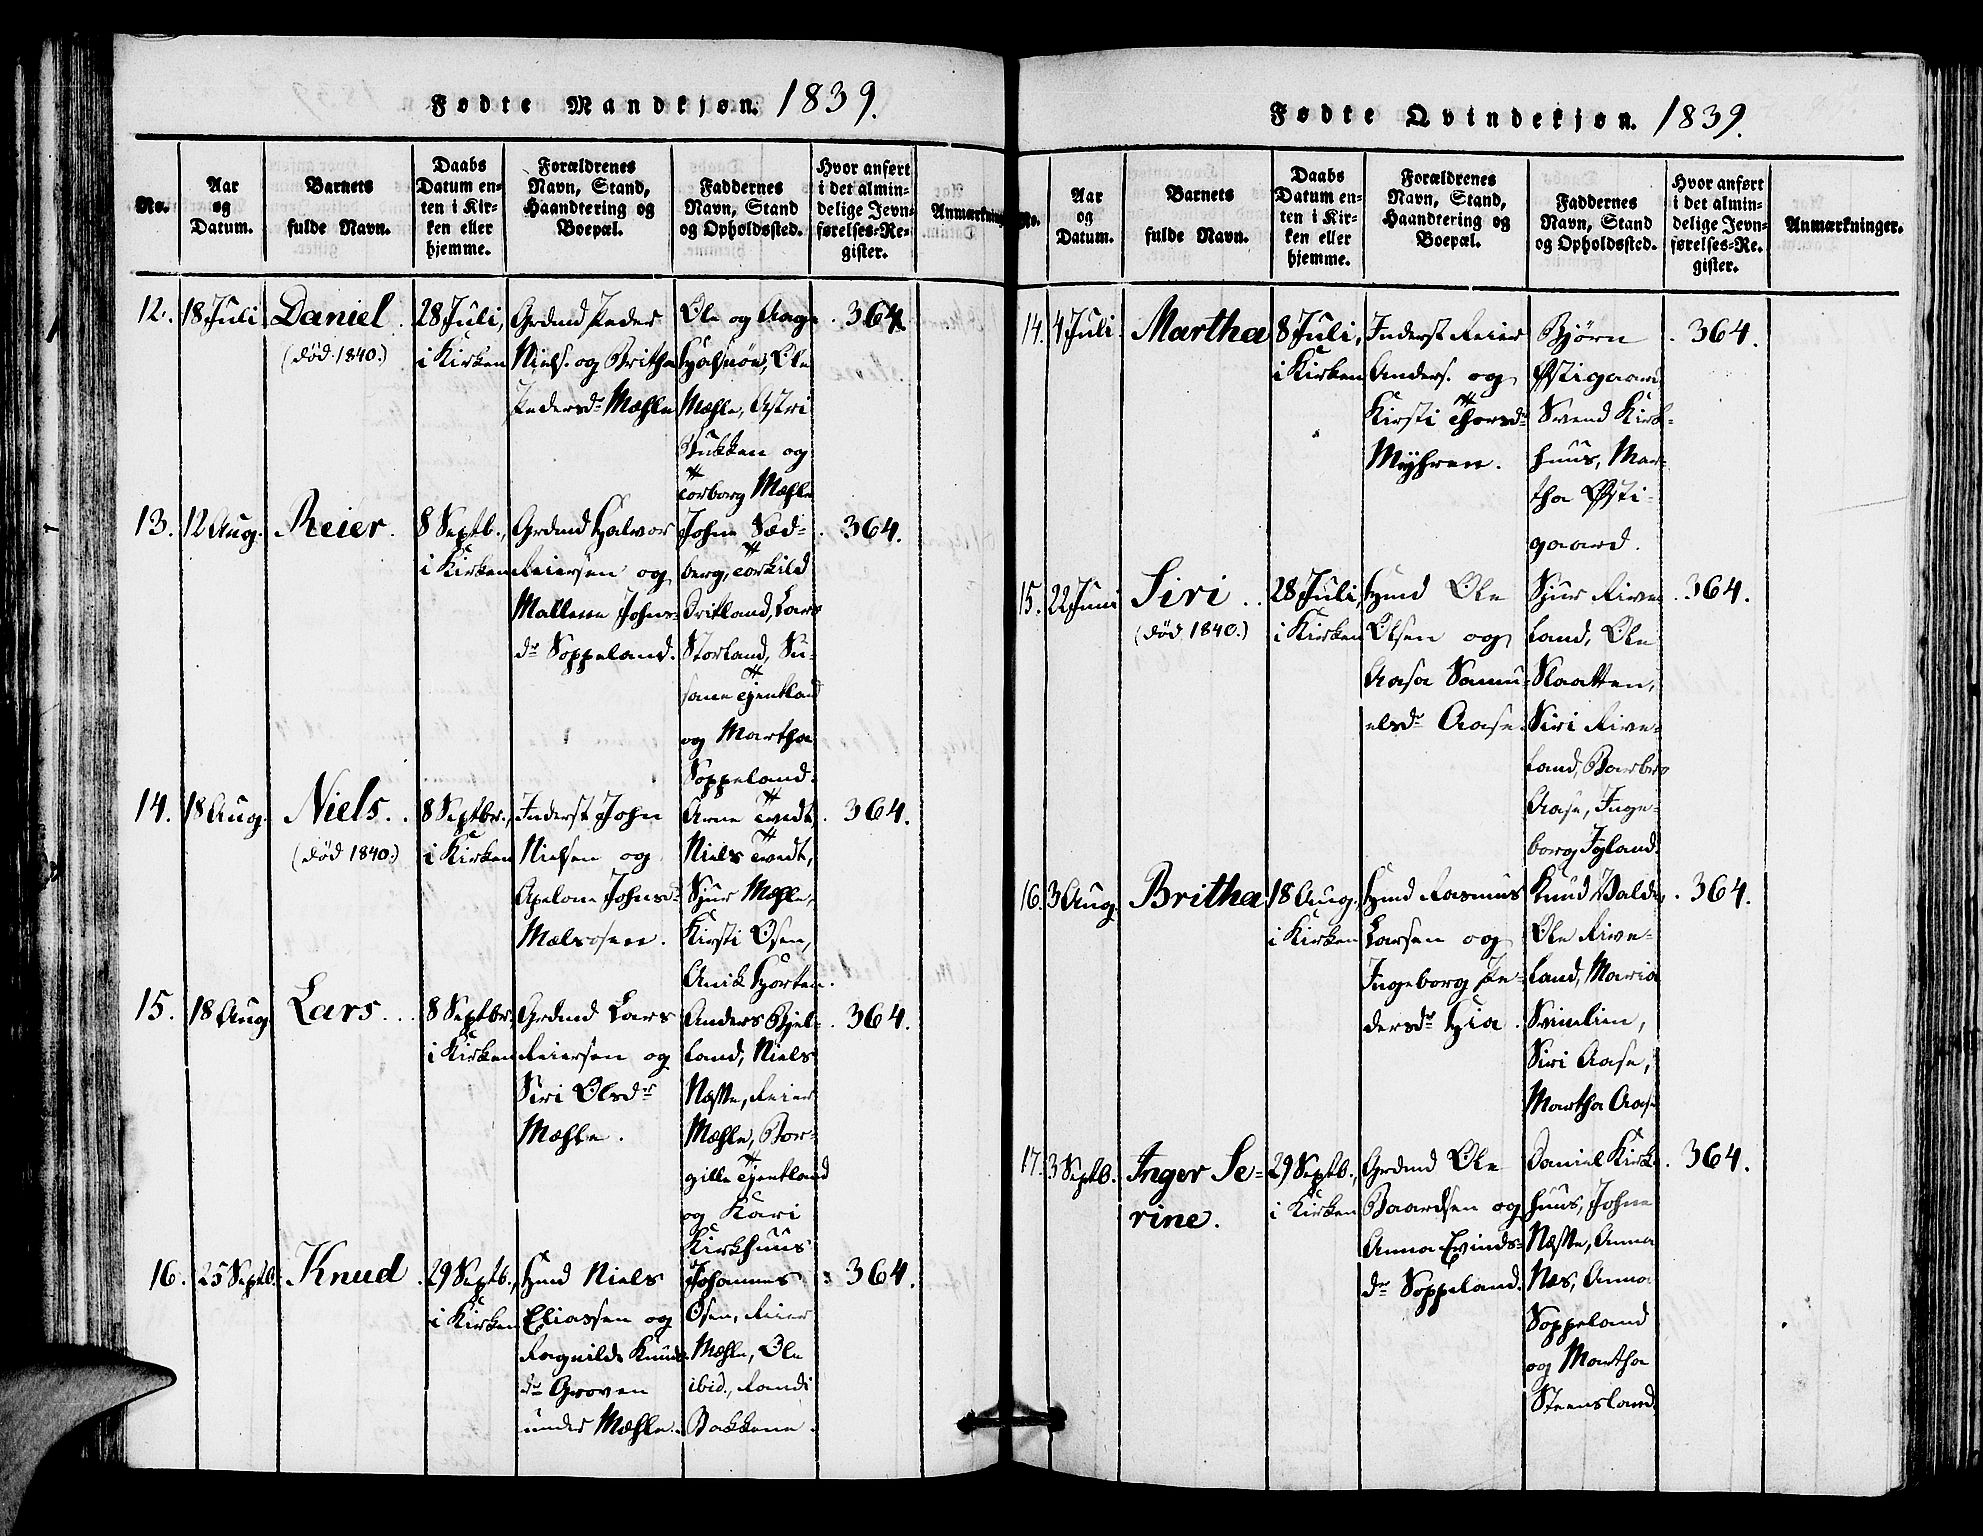 Fødte Mandkjøn. 1839.
No.
Aar og Datum.
Barnets fulde Navn.
Daabs Datum enten i Kirken eller hjemme.
Forældrenes Navn, Stand, Haandtering og Boepæl.
Faddernes Navn, Stand og Opholdssted.
Hvor anført i det almindelige Jevnførelses-Register.
Anmærkning
12. 18 Juli Daniel. (død 1840.)
28 Juli, i Kirken
Grdmd Peder
Niels. og Britha
Pedersdr Mæhle
Ole og Aage
Hjalsnøe, Ole
Mæhle, Astri
Bukken og
Torborg Mæhle
364.
13. 12 Aug. Reier.
8 Septb., i Kirken
Grdmd Halvor
Reiersen og
Mallene Johns-
dr Soppeland.
Johne Sæd-
berg, Torkild
Britland, Lars
Storland, Su-
sane Tjentland
og Martha
Soppeland.
364.
14. 18 Aug. Niels. (død 1840.)
8 Septbr., i Kirken
Inderst John
Nielsen og
Apelone Johnsdr
Mælsosen.
Arne Tvedt,
Niels Tvedt,
Sjur Mæhle,
Kirsti Osen,
Anik Hjorten.
364.
15. 18 Aug. Lars.
8 Septbr., i Kirken
Grdmd Lars
Reiersen og
Siri Olsdr
Mæhle.
Anders Bjel-
land, Niels
Næsse, Reier
Mæhle, Bor-
gille Tjentland
og Kari
Kirkhuus
364.
16. 25 Septb. Knud.
29 Septb., i Kirken
Hmd Niels
Eliassen og
Ragnilde Knuds-
dr Groven
under Mæhle.
Johannes
Osen, Reier
Mæhle, Ole
ibid., Randi
Bakkene.
364.
Fødte Qvindekjøn. 1839.
No.
Aar og Datum.
Barnets fulde Navn.
Daabs Datum enten i Kirken eller hjemme.
Forældrenes Navn, Stand, Haandtering og Boepæl.
Faddernes Navn, Stand og Opholdssted.
Hvor anført i det almindelige Jevnførelses-Register.
Anmærkninger.
14. 4 Juli. Martha
8 Juli, i Kirken
Inderst Reier
Anders. og
Kirsti Thorsdr
Myhren.
Bjørn
Østigaard
Svend Kirk-
huus, Mar-
tha Østi-
gaard.
364.
15. 22 Juni Siri. (død 1840.)
28 Juli, i Kirken
Hmd Ole
Olsen og
Aasa Samu-
elsdr Aase.
Sjur Rive-
land, Ole
Slaatten,
Siri Rive-
land, Barbro
Aase, Inge-
borg Fyland.
364.
16. 3 Aug. Britha
18 Aug., i Kirken
Hmd Rasmus
Larsen og
Ingeborg Pe-
dersdr Hia.
Knud Valde,
Ole Rive-
land, Maria
Svinlien,
Siri Aase,
Martha Aase
364.
17. 3 Septb. Inger Se-
rine.
29 Septb., i Kirken
Grdmd Ole
Baardsen og
Anna Evinds-
dr Soppeland.
Daniel Kirke
huus, Johne
Næsse, Anna
Næs, Anna
Soppeland
og Martha
Steensland.
364.